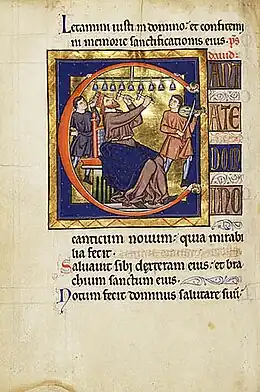 Letamini iusti in domino: et confitemi
ni memorie sanctificationis eius. ps
dauid.
CAN
TATE
DOM
INO
canticum nouum: quia mirabi
lia fecit.
Saluauit sibi dextera eius: et bra
chium sanctum eius.
Notum fecit dominus salutare suū: